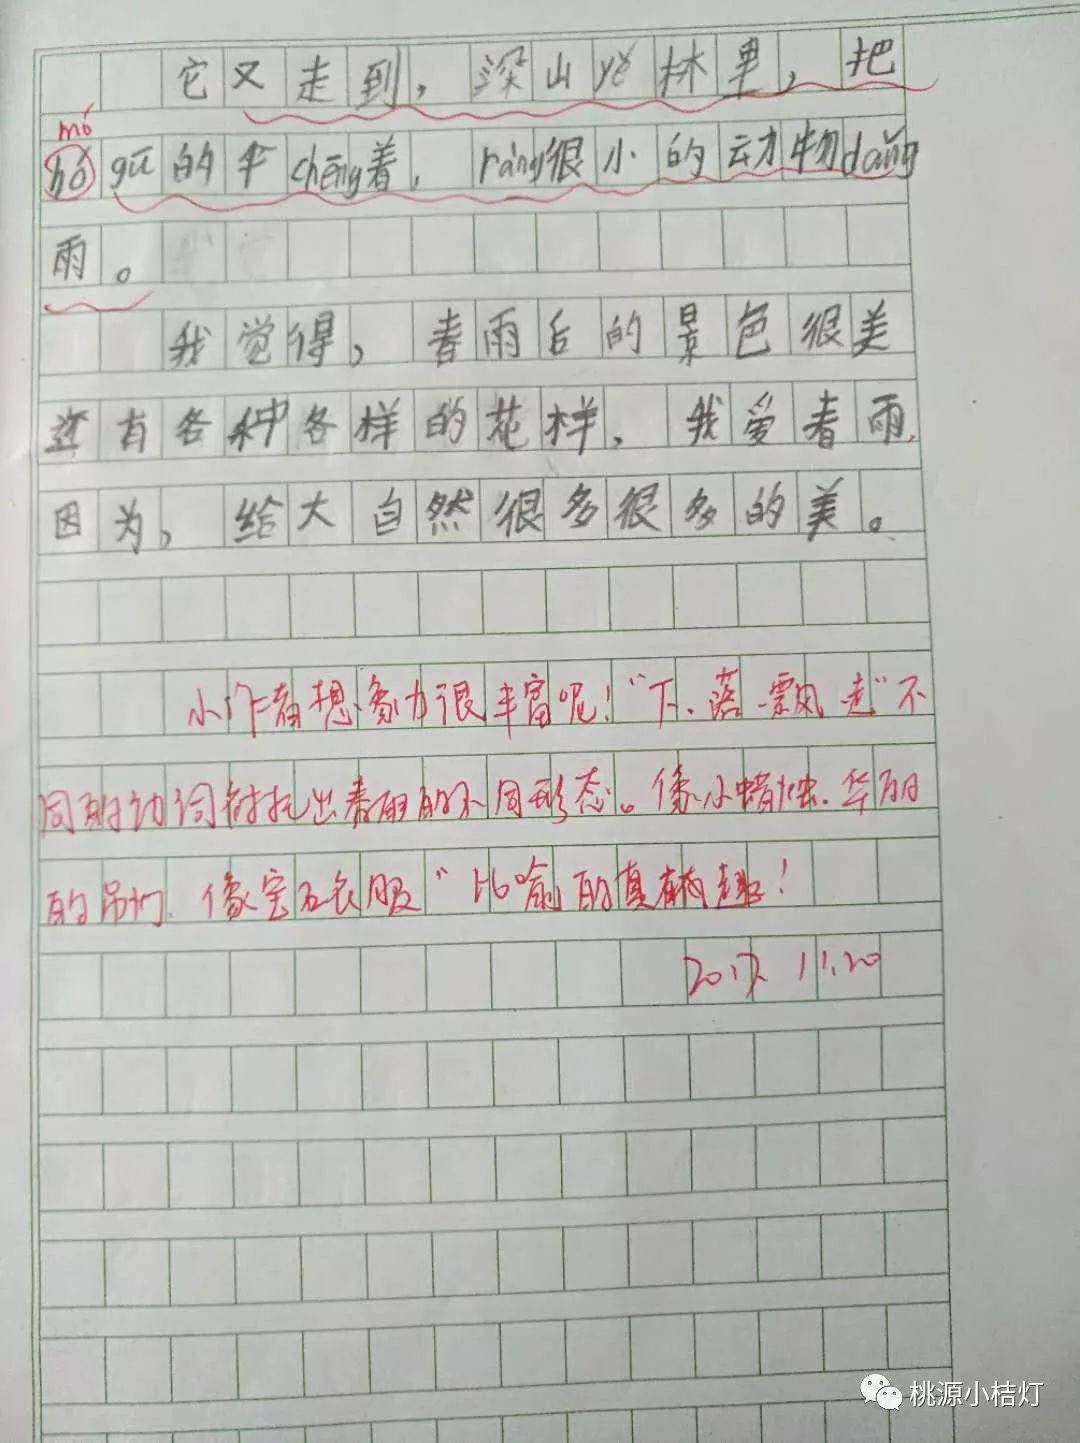 它又走到，深山yě林里，把
mó
hó gū的伞chēng着，ràng很小的动物dǎng
雨。
我觉得，春雨后的景色很美
还有各种各样的花样，我爱春雨，
因为，给大自然很多很多的美。
小作者想象力很丰富呢！“下、落、飘、走”不
同的动词衬托出春雨的不同形态。像小蜡烛、华丽
的吊灯、像宝石衣服“比喻的真有趣！
2017. 11.20
桃源小桔灯